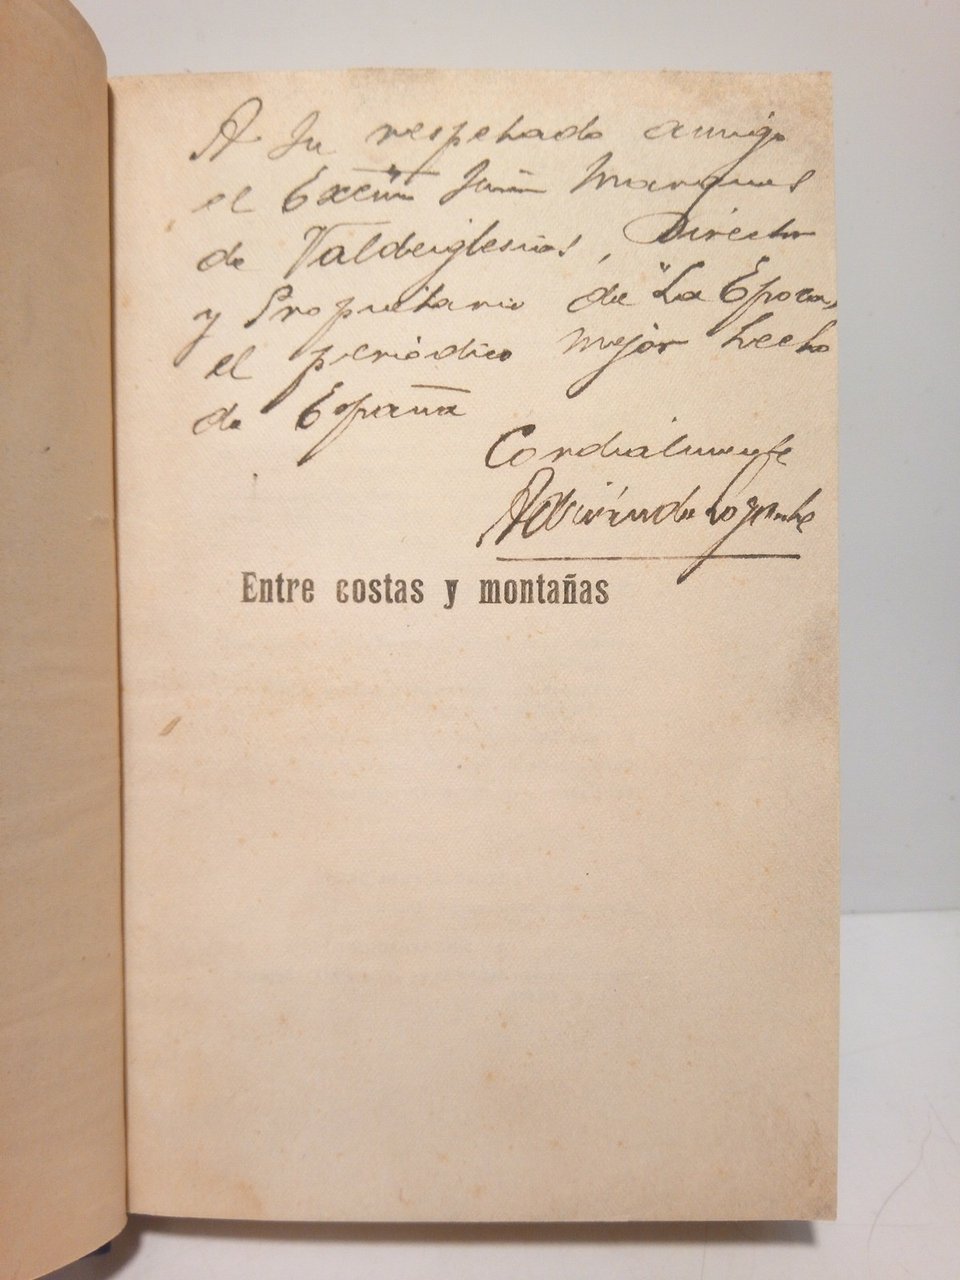 A su respetado amigo
el Excmo Señor Marques
de Valdeiglesias, Director
y Propietario de "La Epoca",
el periódico mejor hecho
de España
Cordialmente
Adrián de Loyarte
Entre costas y montañas